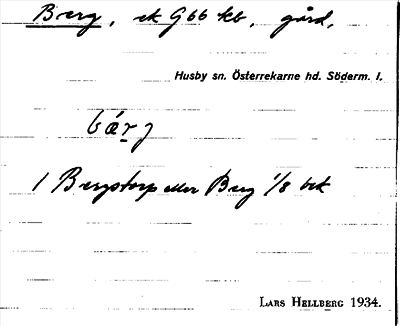 Berg, ek G 66 kb, gård,
Husby sn. Österrekarne hd. Söderm. l.
bá̤rj
1 Bergstorp eller Berg 1/8 btk
LARS HELLBERG 1934.